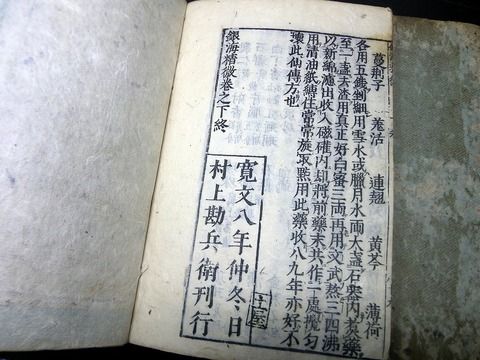 蔓荆子　羗活　連翹　黃芩　薄荷
各用五錢剉細用雪水或臘月水兩大盞石器內煮藥
至一盞去渣用真正好白蜜三兩再用文武熬三四沸
以新綿濾出收入磁確內却將前藥末共作一處攪勻
用清油紙縳住當常旋取點用此藥收八九年亦好不
壞此仙傳方也
銀海精微卷之下終
寬文八年仲冬日
村上勘兵衛刊行